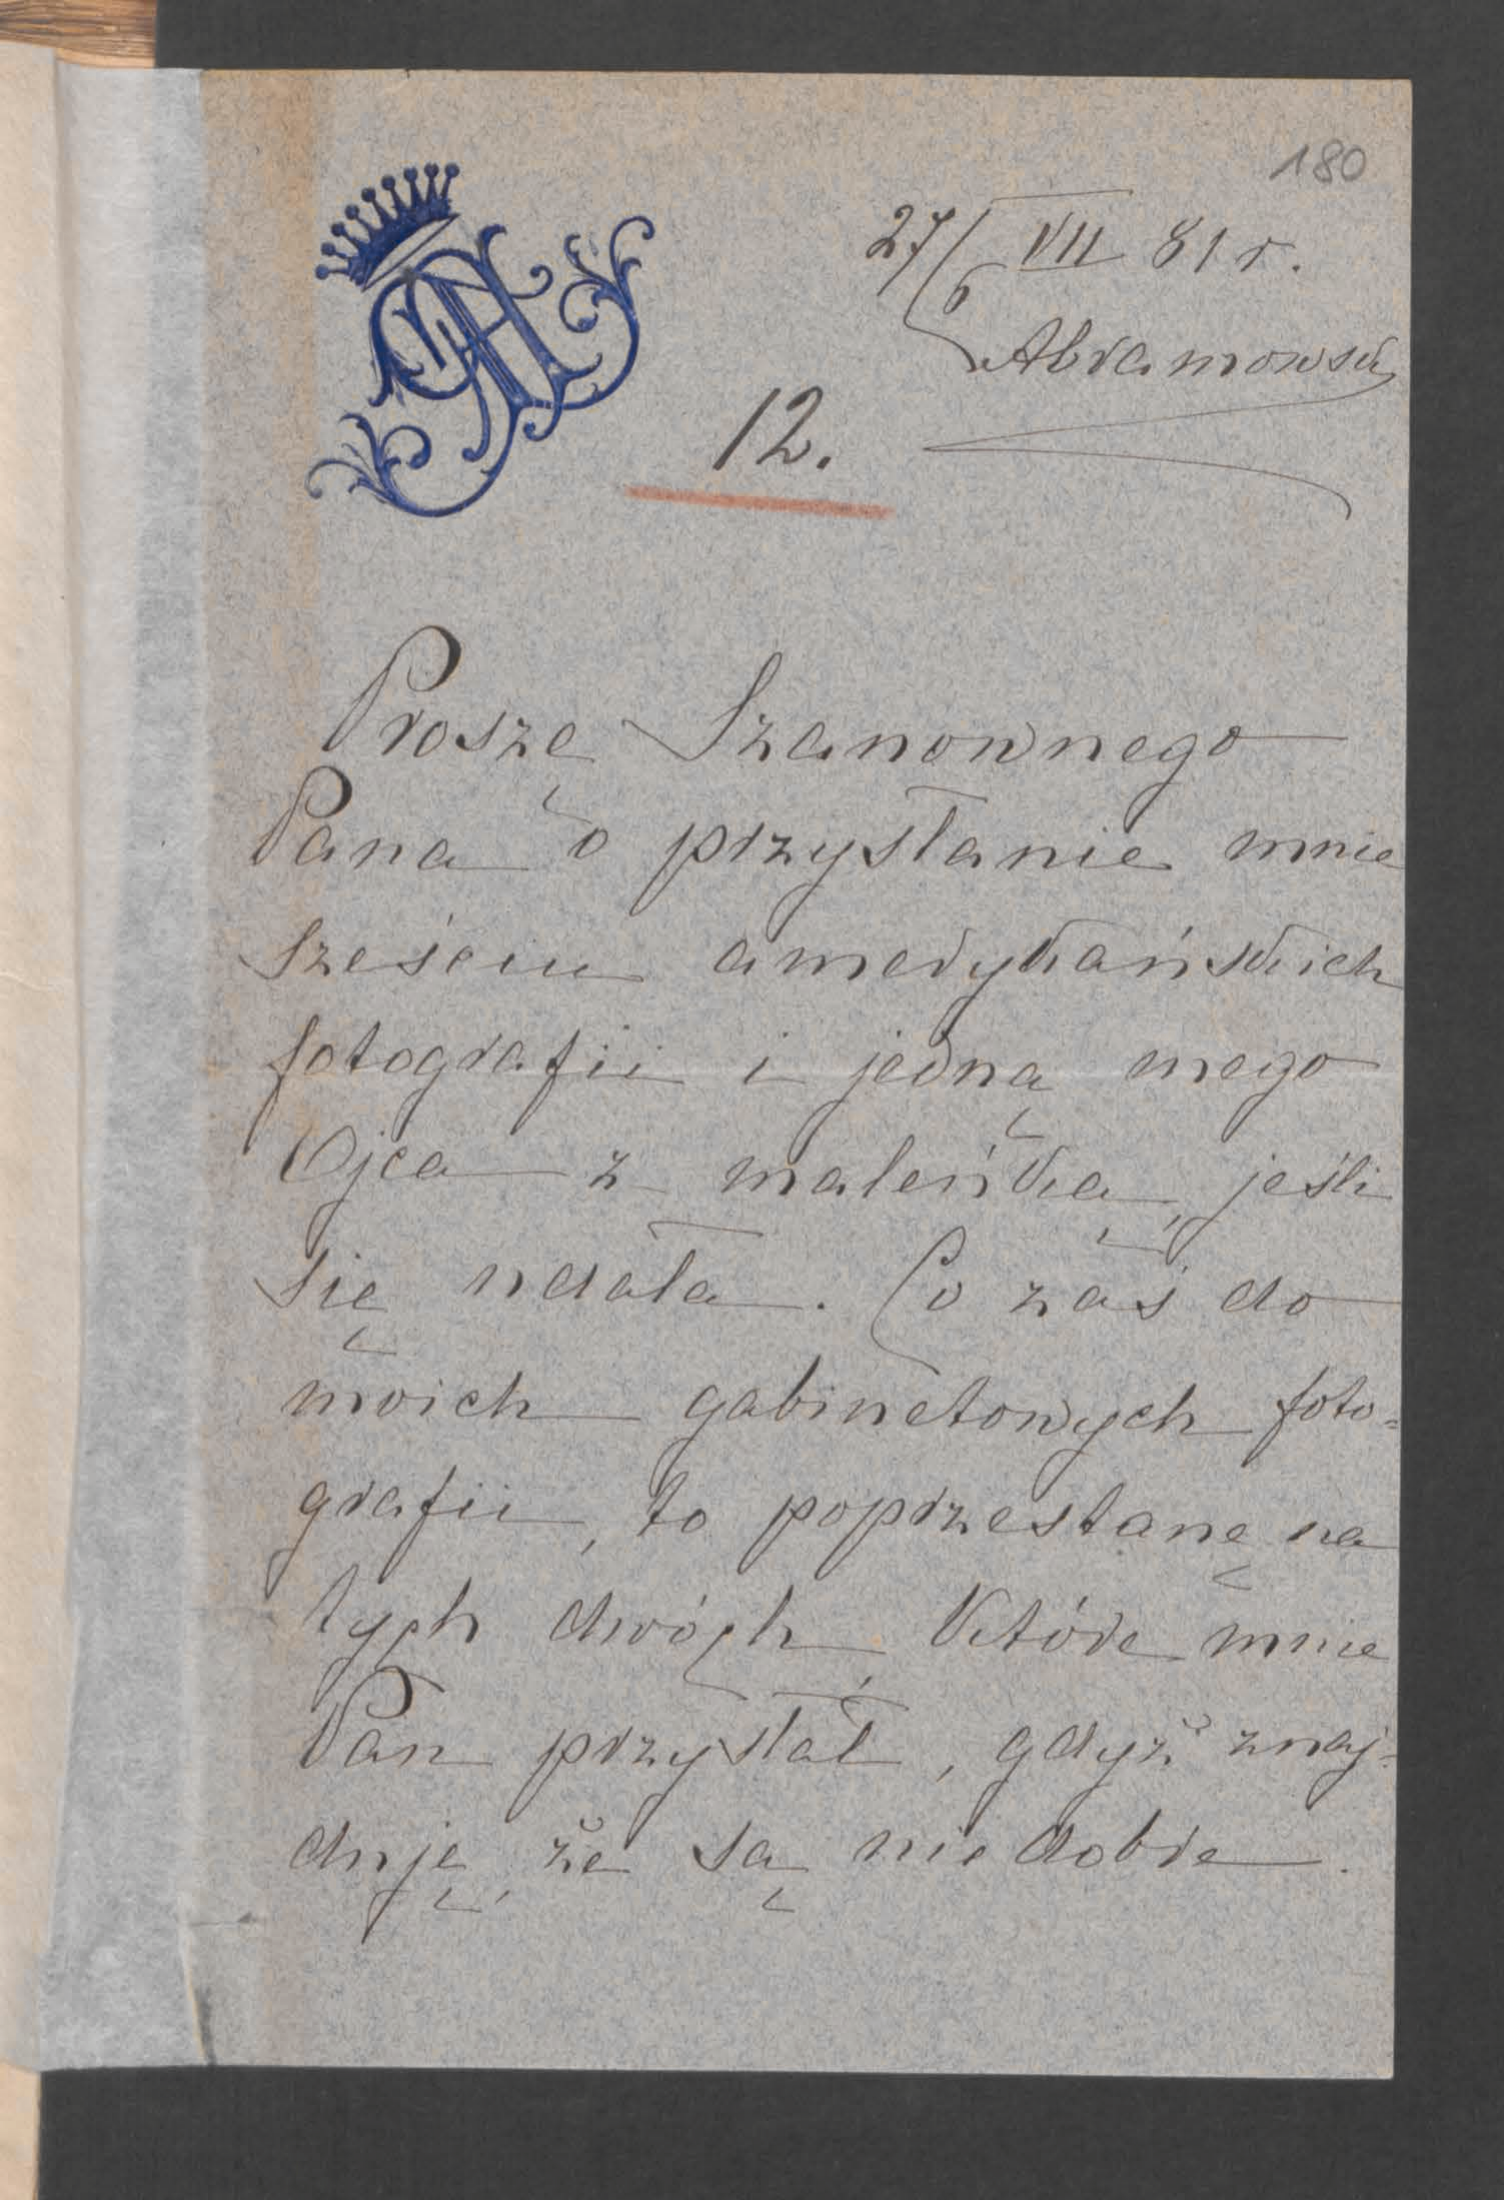 180
27/VII 81 r.
Abramowsk
12.
Proszę Szanownego
Pana o przysłanie mnie
sześciu amerykańskich
fotografii i jedną mego
Ojca z maleńką, jeśli
się udała. Co zaś do
moich gabinetowych foto=
grafii, to poprzestanę na
tych dwóch, które mnie
Pan przysłał, gdyż znaj=
duję, że są niedobre.